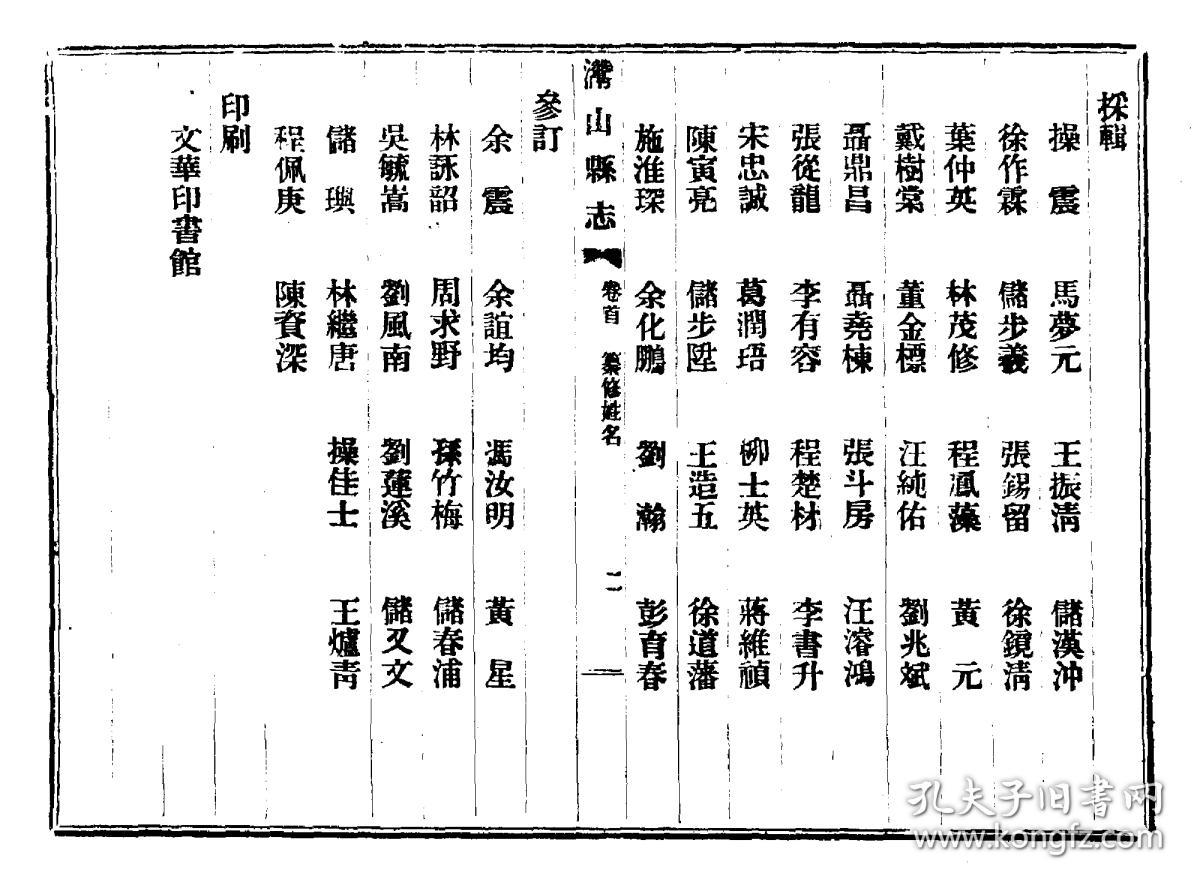 採輯
操　震　馬夢元　王振淸　儲漢沖
徐作霖　儲步羲　張錫留　徐鏡淸
葉仲英　林茂修　程鳳藻　黃　元
戴樹棠　董金標　汪純佑　劉兆斌
聶鼎昌　聶堯棟　張斗房　汪濬鴻
張從龍　李有容　程楚材　李書升
宋忠誠　葛潤琣　柳士英　蔣維禎
陳寅亮　儲步陞　王造五　徐道藩
施淮琛　余化鵬　劉　瀚　彭育春
灊山縣志　卷首　纂修姓名　二
參訂
余　震　余誼均　馮汝明　黃　星
林詠韶　周求野　孫竹梅　儲春浦
吳毓嵩　劉風南　劉蓮溪　儲又文
儲　璵　林繼唐　操佳士　王爐靑
程佩庚　陳資深
印刷
文華印書館
孔夫子旧书网
www.kongfz.com